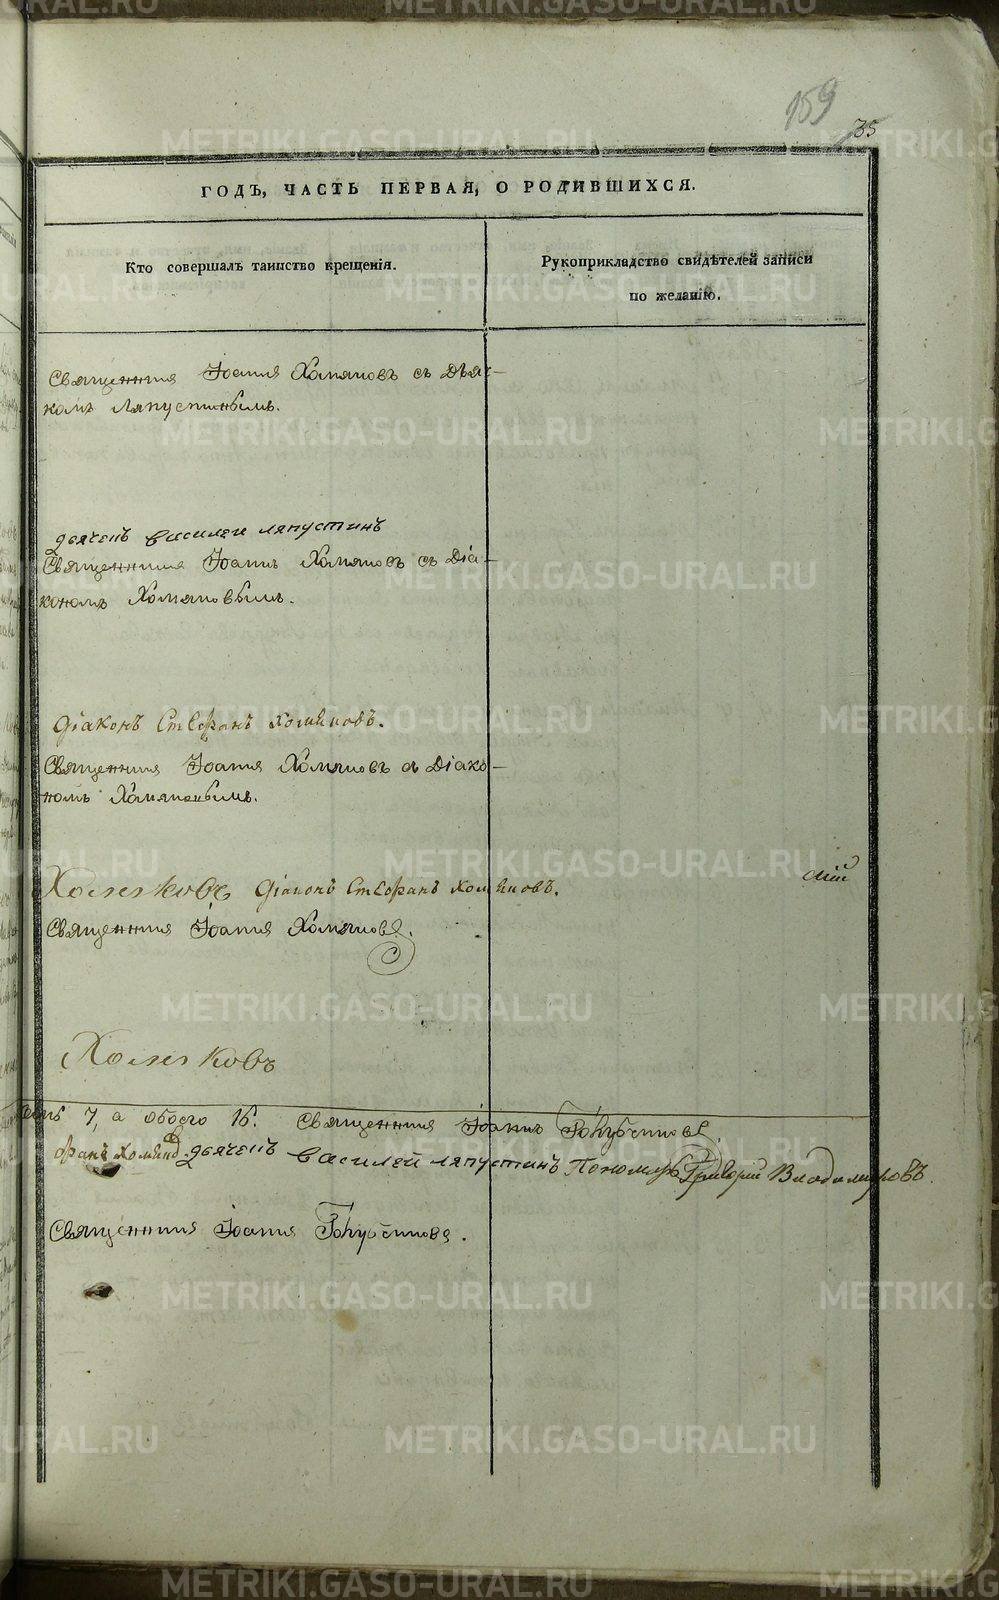 159
35
ГОДЪ, ЧАСТЬ ПЕРВАЯ, О РОДИВШИХСЯ.
Кто совершалъ таинство крещенія.
Рукоприкладство свидѣтелей записи
по желанію.
Священникъ Іоаннъ Хомяковъ съ Дьяч-
комъ Ляпустинымъ.
дьячекъ василеи ляпустинъ
Священникъ Іоаннъ Хомяковъ съ Діа-
кономъ Хомяковымъ.
діаконъ Стефанъ Хомяковъ.
Священникъ Іоаннъ Хомяковъ съ Діако-
номъ Хомяковымъ.
Хомяковъ діаконъ Стефанъ Хомяковъ.
Священникъ Іоаннъ Хомяковъ.
Хомяковъ
7, а обоего 16. Священникъ Іоаннъ
фанъ дьячекъ василей ляпустинъ Пономарь Григорій Владимировъ.
Священникъ Іоаннъ
METRIKI.GASO-URAL.RU